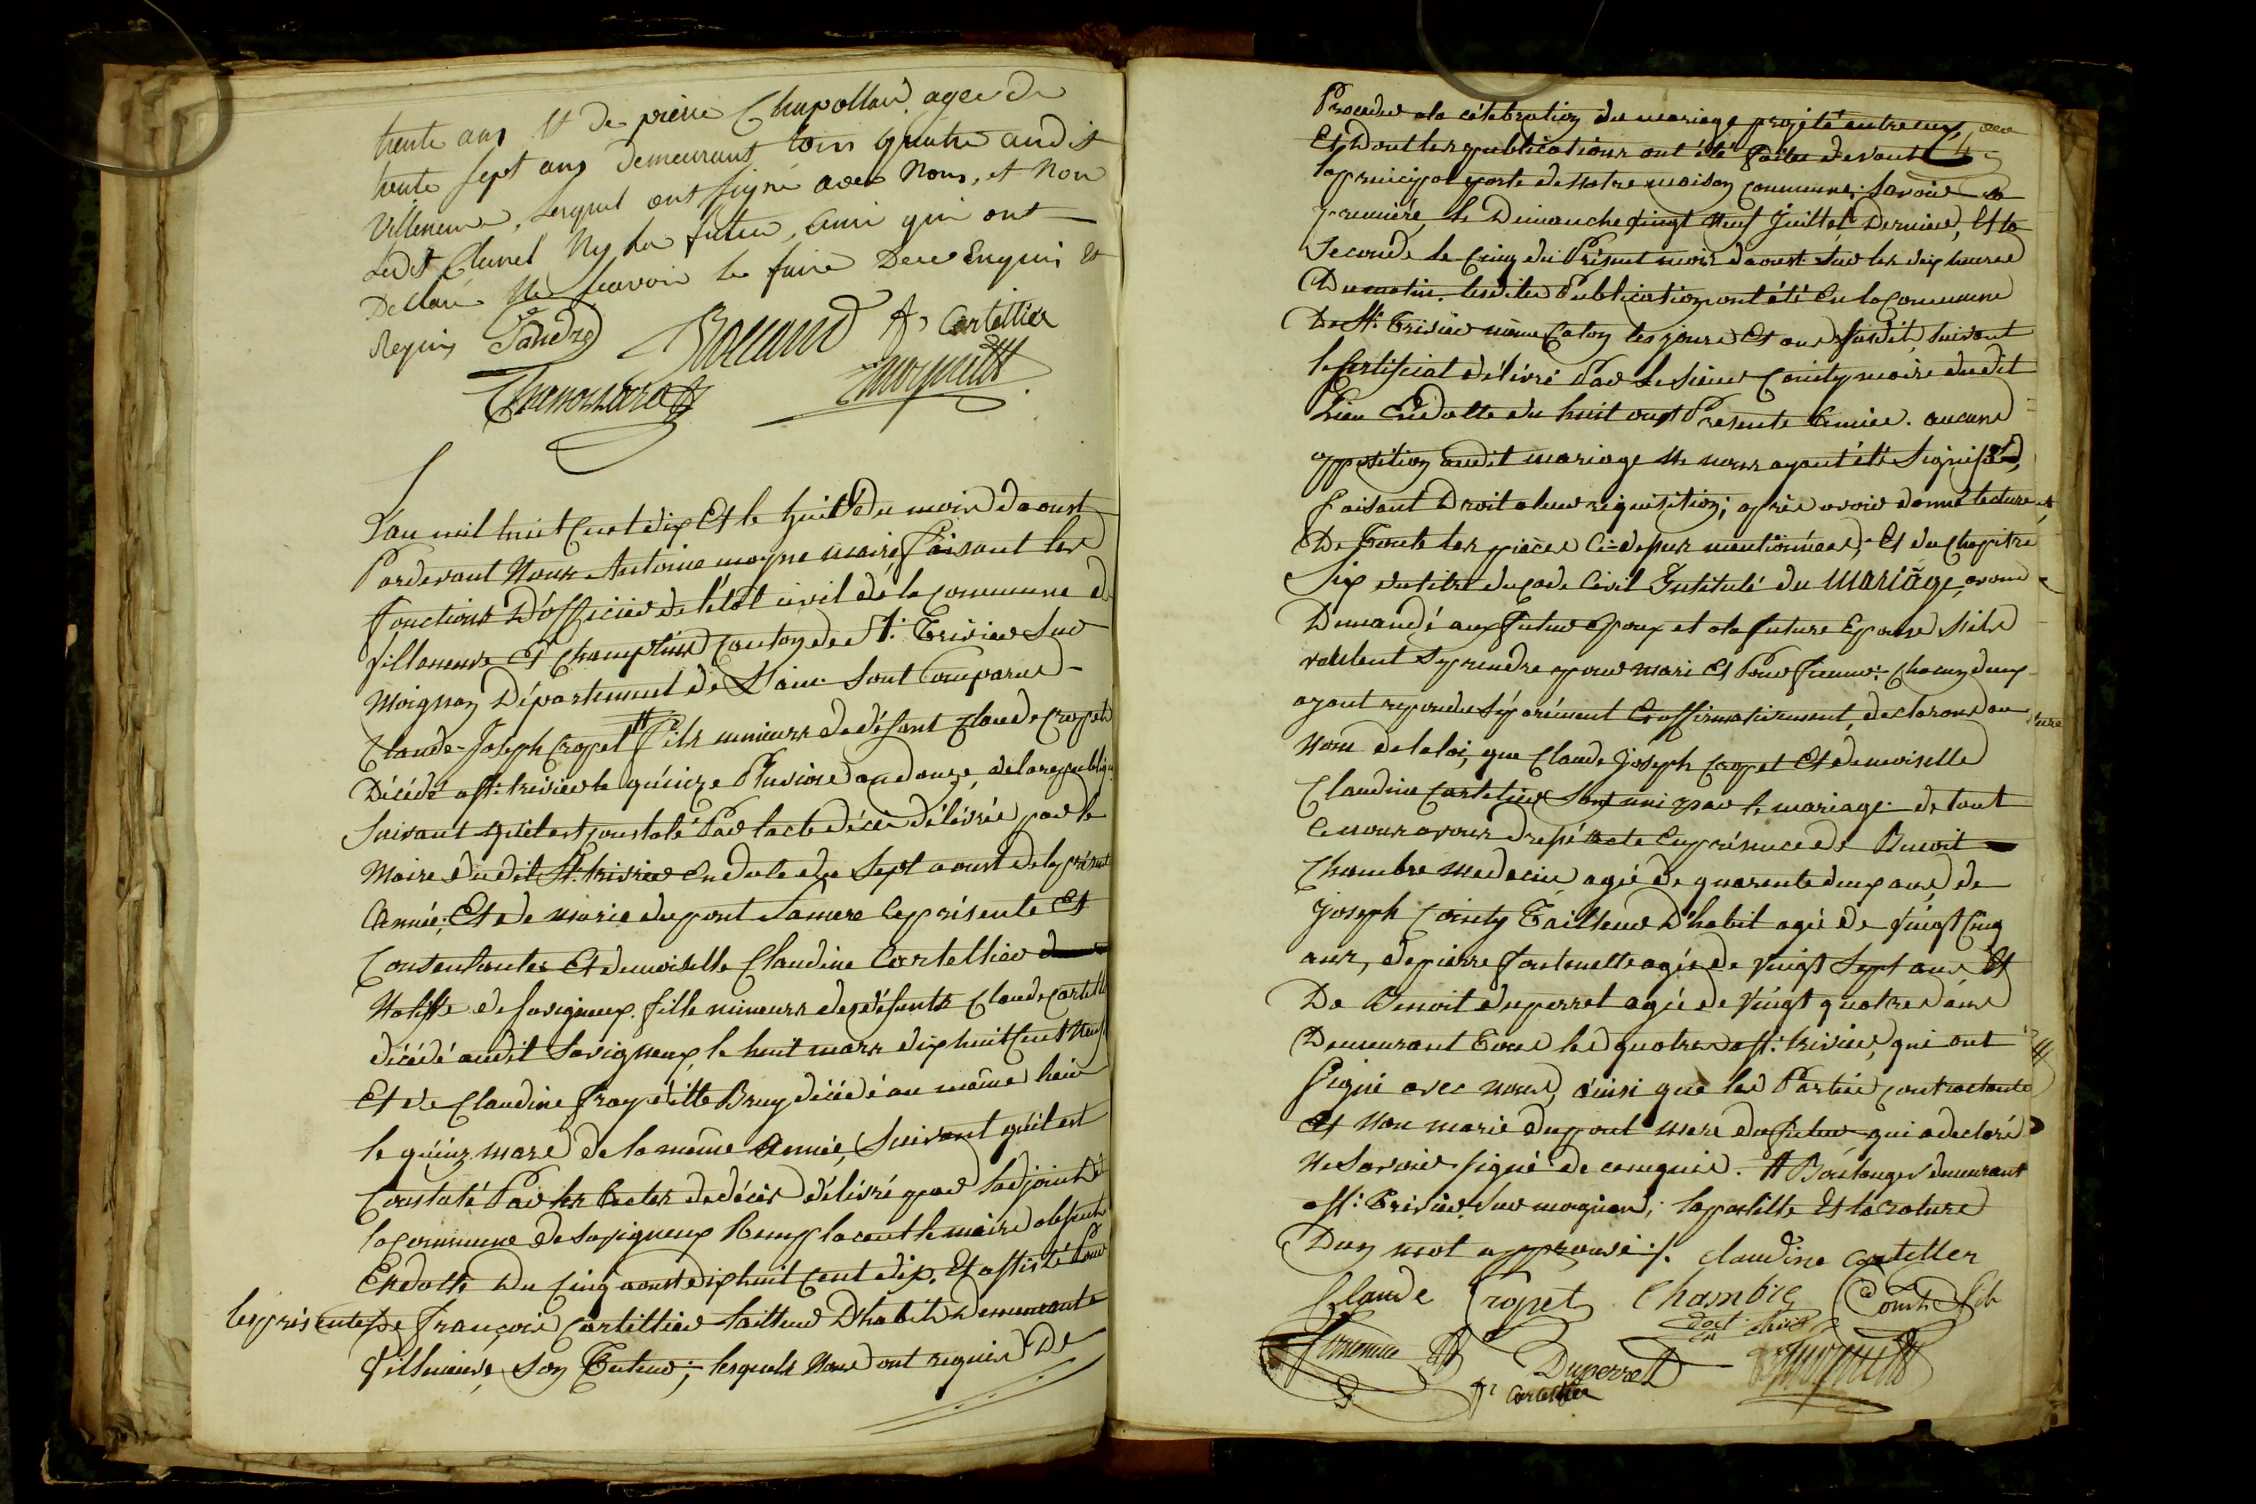 trente ans et de pierre Chapolland agee de
trente sept ans demeurant tous quatre audit
Villeneuve, lesquel ont signé avec Nous, et Non
ledit Clunel Ny la future, ainsi qui ont
Declaré Ne scavoir le faire Dece Enquis et
Requis Sandre Rolland fs Cartellier
Chanollard
L'an mil huit Cent dix Et le huit du mois daoust
Pardevant Nous Antoine moyne maire faisant les
fonctions D'officier de l'état civil de la commune de
Villeneuve Et Champtein Canton de St. Trivier Sur
Moignan Département de L'ain. Sont Comparus
Claude-Joseph Cropet # fils mineurs de défunt Claude Cropet
Décédé a St. trivier le quinze Pluviose an douze, de la republique
Suivant qu'il est constaté Par lacte décès délivrée par le
Maire dudit St. trivier En date du Sept aoust de la présent
Année; Et de Marie dupont Samere Cy présente Et
Consentante Et demoiselle Claudine Cartellier
Native de Savigneux fille mineurs de défunts Claude Cartellier
décédé audit Savigneux le huit mars dix huit Cent Neuf
Et de Claudine fray ditte Bruy décédé au même lieu
le quinz mars de la même Année, Suivant qu'il est
Constaté Par les Actes de décès délivré par ladjoint de
la Commune de Savigneux Remplacant le maire absent
En datte du Cinq aoust dix huit cent dix. Et assisté Pour
les présentes De François Cartellier tailleur D'habits Demeurant a
Villeneuve, Son Tuteur; lesquels Nous ont requis De
Proceder a la célébration du mariage projété entre eux,
Et Dont les publications ont été faites devant
la principal porte de Notre maison commune; Savoir la
premiére le Dimanche vingt Neuf Juillet Dernier, Et la
Seconde le Cinq du Présent mois daoust Sur les dix heures
Du matin. lesdites Publication ont été En la Commune
De St. Trivier même Caton les jours Et ans susdit, suivant
le Certificat délivré Par le Sieur Cointy maire dudit
Lieu En datte du huit oust Presente Année. aucune
opposition audit mariage Ne nous ayant été Signifiée,
faisant Droit a leur réquisition; après avoir donné lecture
De Toute les pièces Ci-dessus mentionnées, Et du Chapitre
Six du titre du Code Civil Intitulé du Mariage, avons
Demandé aux futur Epoux et a la future Epouse S'ils
veulent Se prendre pour mari Et Pour femme; Chacun deux
ayant repondu Séparément Et affirmativement, declarons au
Nom de la loi, que Claude Joseph Cropet Et demoiselle
Claudine Cartelier Sont uni par le mariage. de tout
Ce nous avons Dressé Acte En présence de Benoit
Chambre Medecin agé de quarente deux ans, de
Joseph Cointy Tailleur D'habit agé de vingt Cinq
ans, de pierre fontenette agée de vingt Sept ans Et
De Benoit duperret agée de vingt quatre ans
Demeurant Tous les quatres a St. trivier, qui ont
Signé avec nous, ainsi que les Parties contractante
Et Non marie dupont mere du futur qui a declaré
Ne Savoir signé de ce enquis. # Boulanger demeurant
a St. Trivier Sur mognand; lapostille Et la rature
Dun mot approuvé ./. Claudine Cartellier
Claude Cropet Chambre Cointy fils
Duperret
fs Cartellier